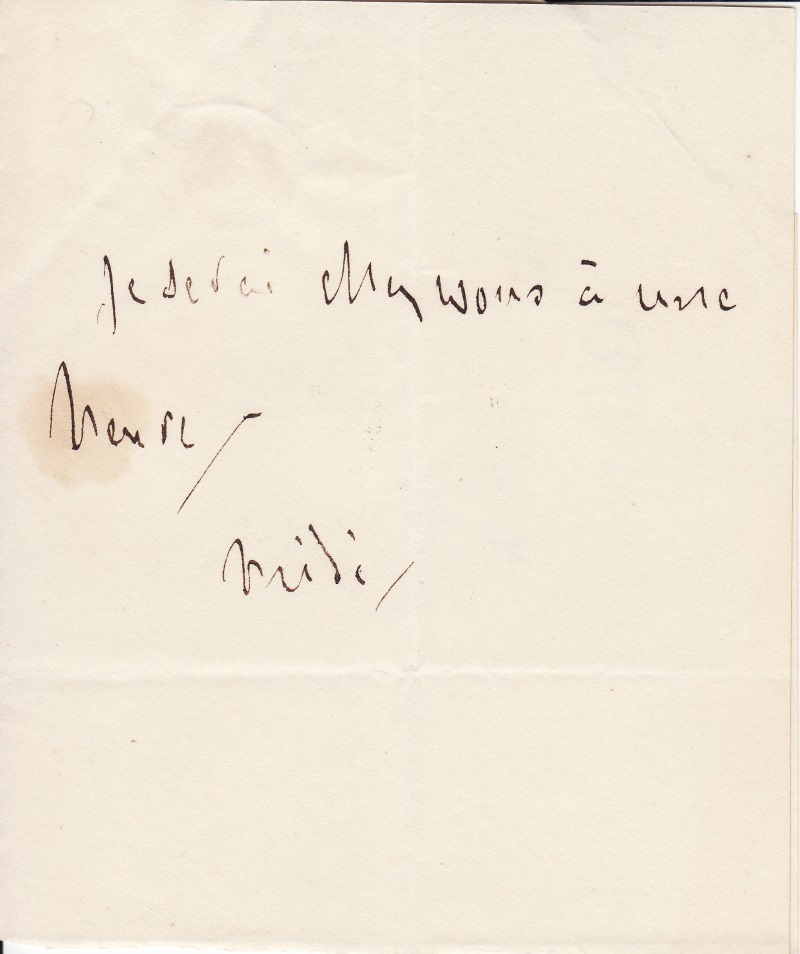 Je serai chez vous à une
heure
midi